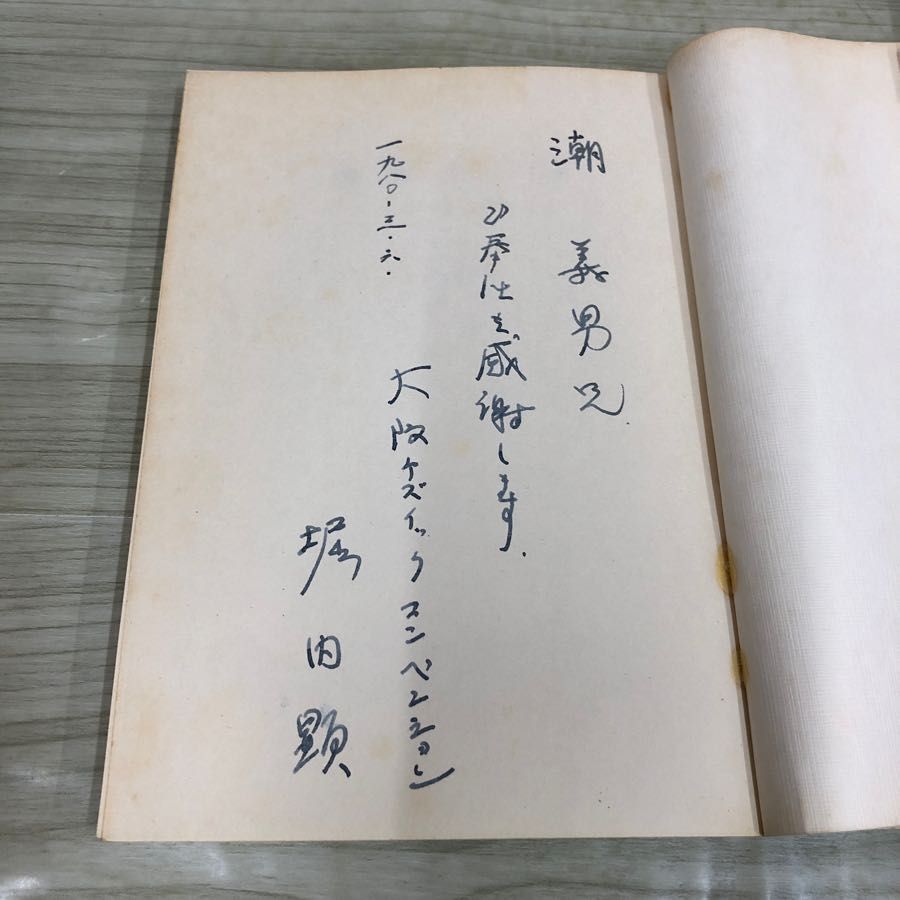 潮 義男兄
ご奉仕を感謝します。
一九八〇.三.六.
大阪ケズィックコンベンション
堀内顕